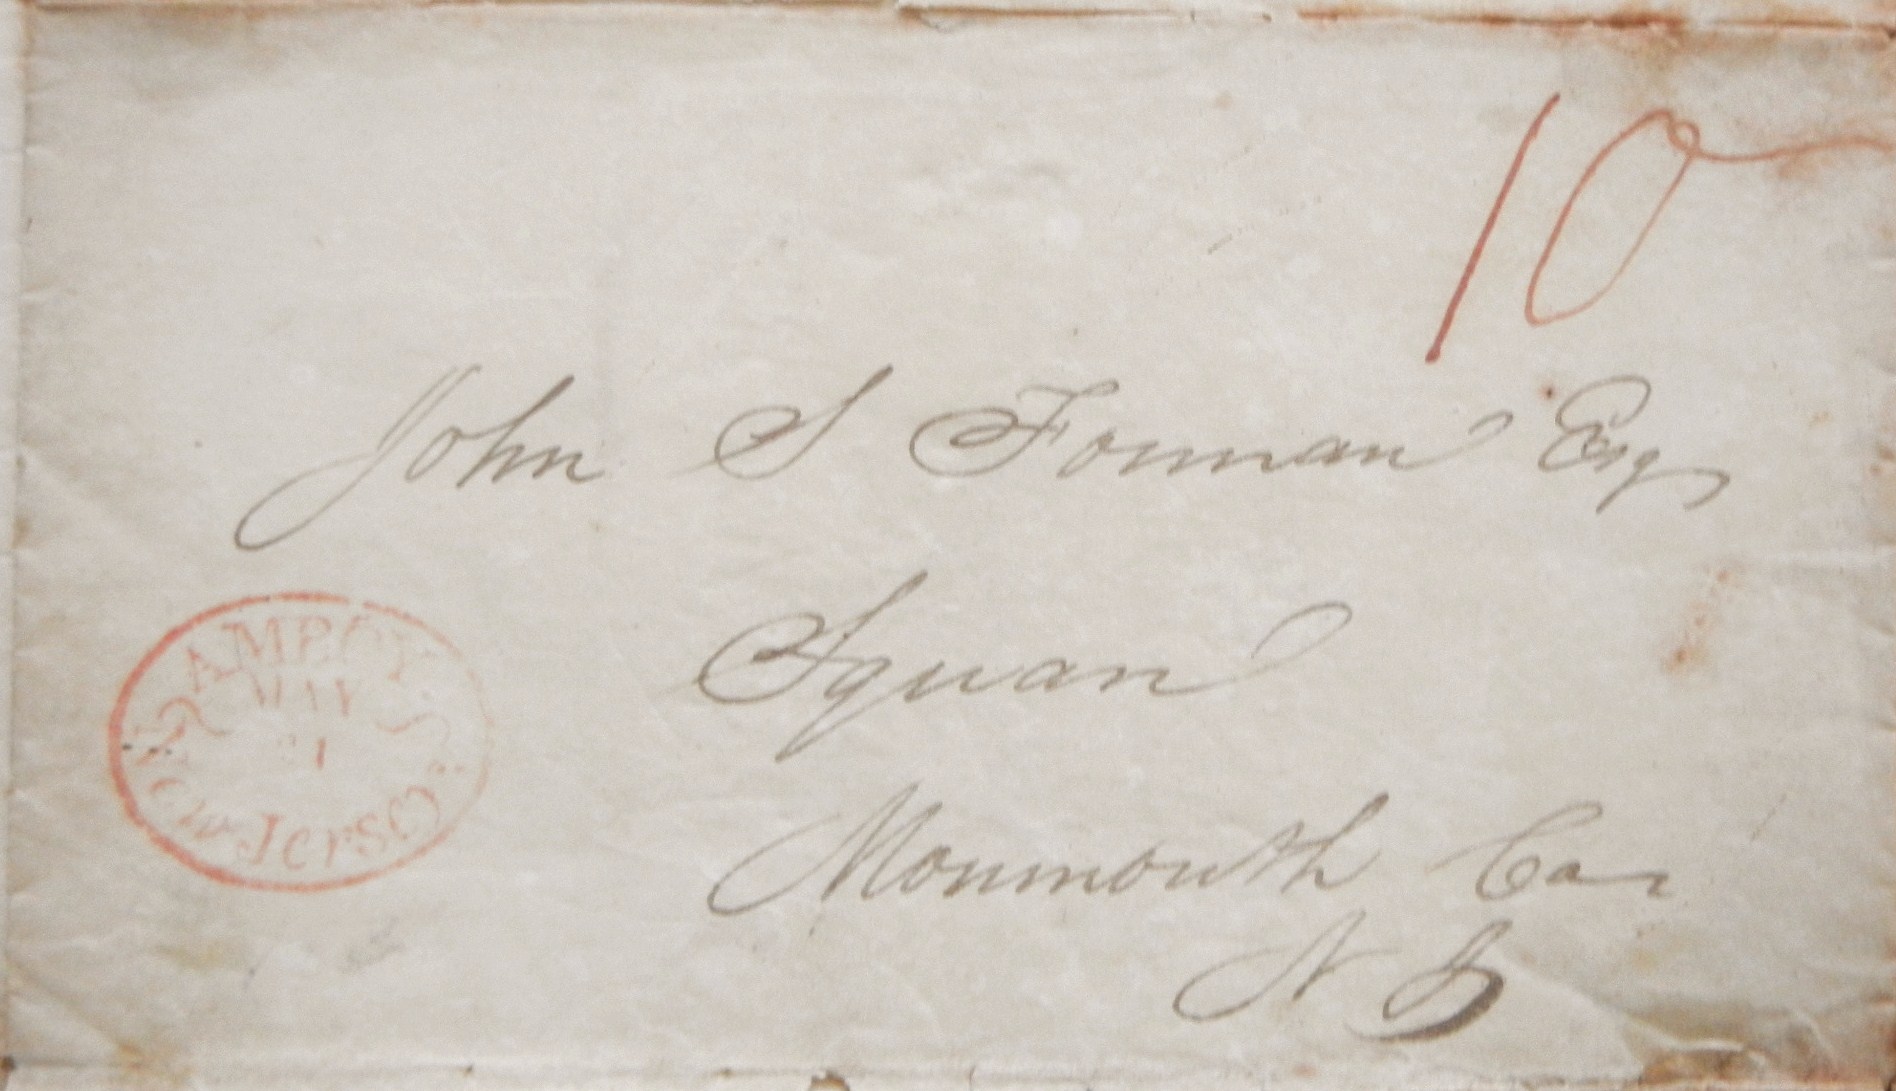 10
John S Forman Esq
Squan
AMBOY
MAY
New Jersey
Monmouth Co
N J